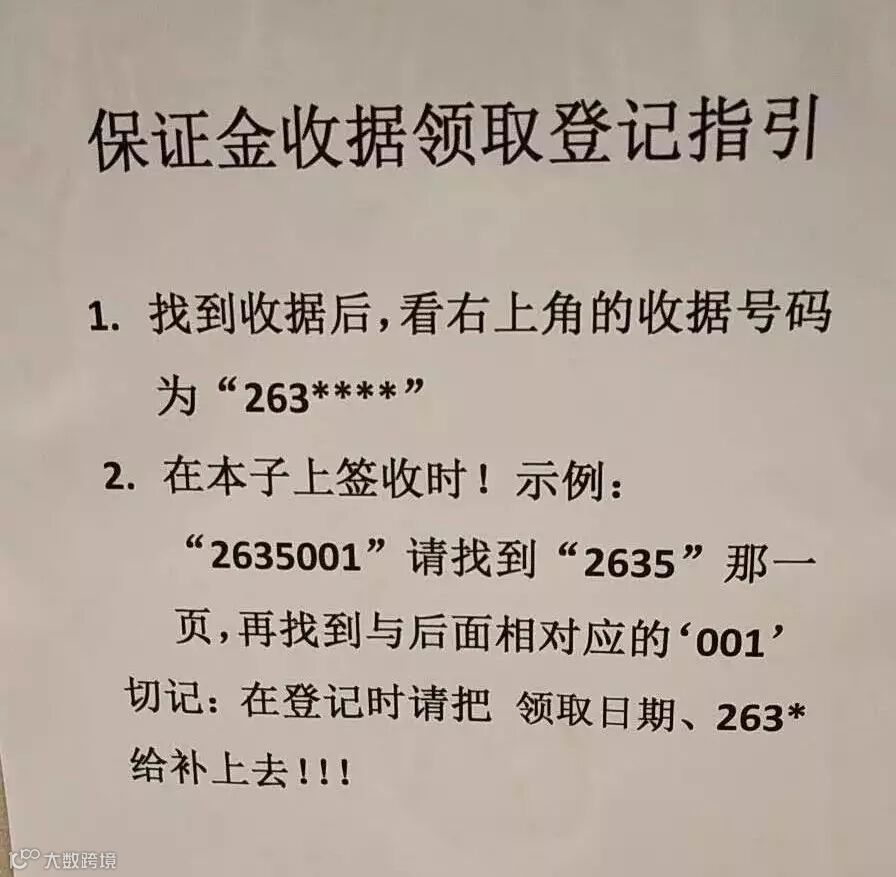 保证金收据领取登记指引
1. 找到收据后,看右上角的收据号码
为“263****”
2. 在本子上签收时！示例：
“2635001”请找到“2635”那一
页,再找到与后面相对应的‘001’
切记：在登记时请把 领取日期、263*
给补上去!!!
大数跨境